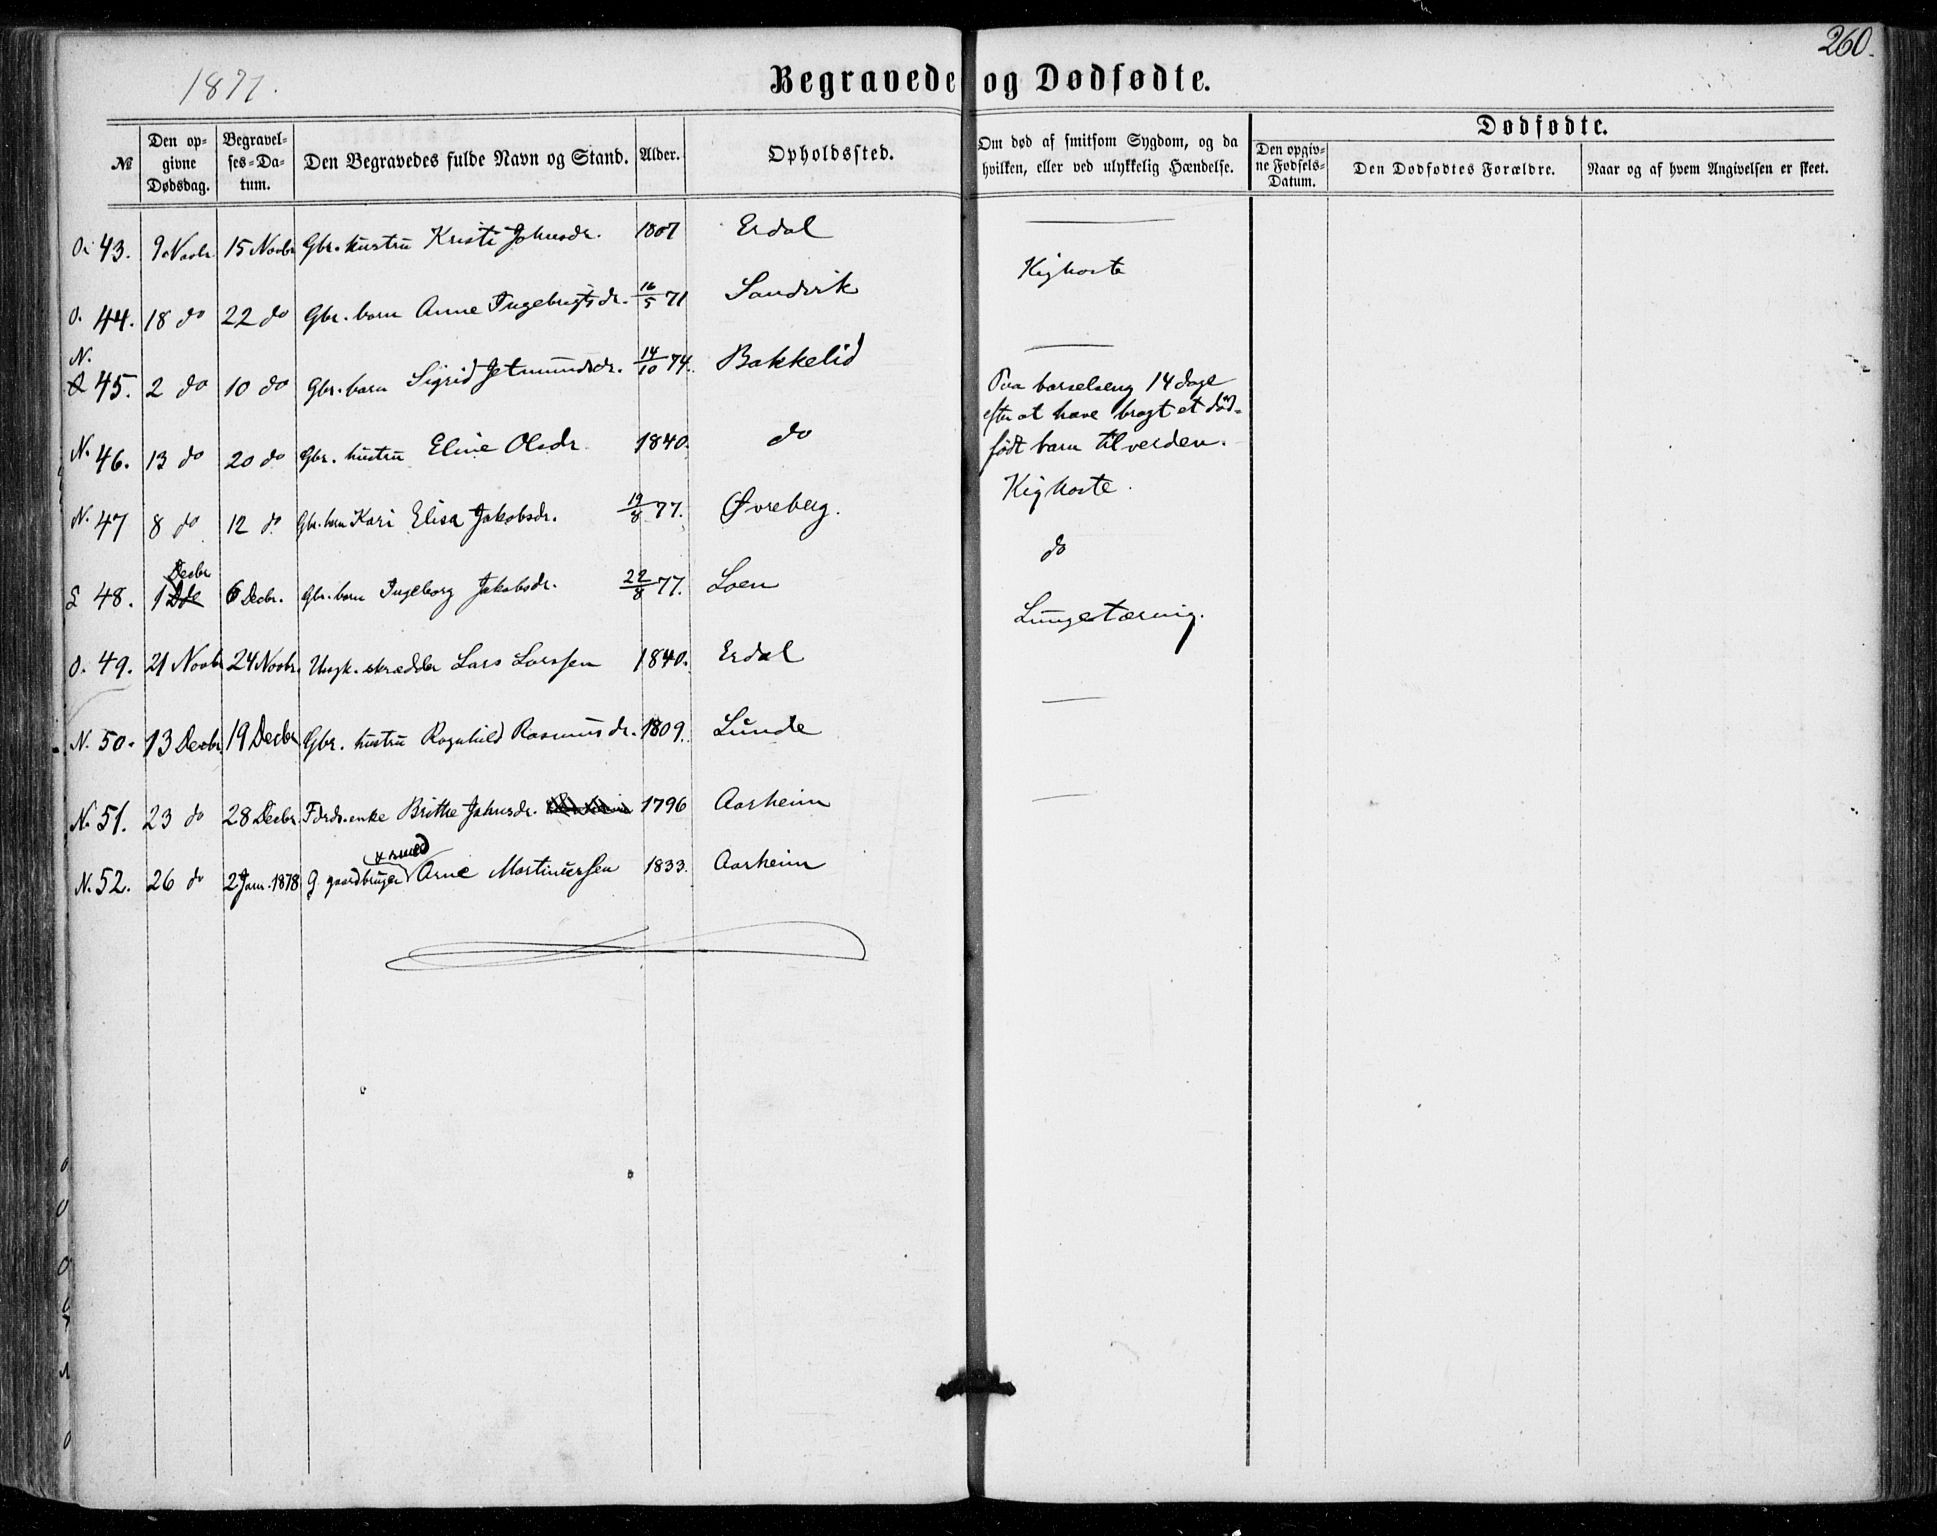 260.
1877.
Begravede og Dødfødte.
№ | Den opgivne Dødsdag. | Begravelses-Datum. | Den Begravedes fulde Navn og Stand. | Alder. | Opholdssted. | Om død af smitsom Sygdom, og da hvilken, eller ved ulykkelig Hændelse. | Dødfødte. Den opgivne Fødsels-Datum. | Den Dødfødtes Forældre. | Naar og af hvem Angivelsen er skeet.
O. 43. 9 Novbr 15 Novbr Gbr. hustru Kristi Johnsdr. 1807 Erdal —
O. 44. 18 do 22 do Gbr. barn Anne Ingebrigtsdr. 16/5 71 Sandvik Kighoste
N. 45. 2 do 10 do Gbr. barn Sigrid Jetmundsdr. 14/10 74. Bakkelid —
N. 46. 13 do 20 do Gbr. hustru Eline Olsdr. 1840. do Paa barselseng 14 dage
efter at have bragt et død-
født barn til verden.
N. 47 8 do 12 do Gbr. barn Kari Elisa Jakobsdr. 19/8 77. Øvreberg. Kighoste.
L 48. 1 Decbr 6 Decbr. Gbr. barn Ingeborg Jakobsdr. 22/8 77. Loen do
O. 49. 21 Novbr 24 Novbr. Ungk. skrædder Lars Larssen 1840. Erdal Lungetæring.
N. 50. 13 Decbr 19 Decbr Gbr. hustru Ragnhild Rasmusdr. 1809. Lunde —
N. 51. 23 do 28 Decbr. Fdrds. enke Brithe Johnsdr. 1796 Aarheim —
N. 52. 26 do 2 Janr. 1878 G. gaardbruger + smed Arne Martinussen 1833. Aarheim